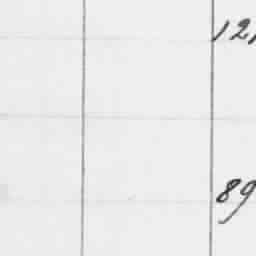 121
89